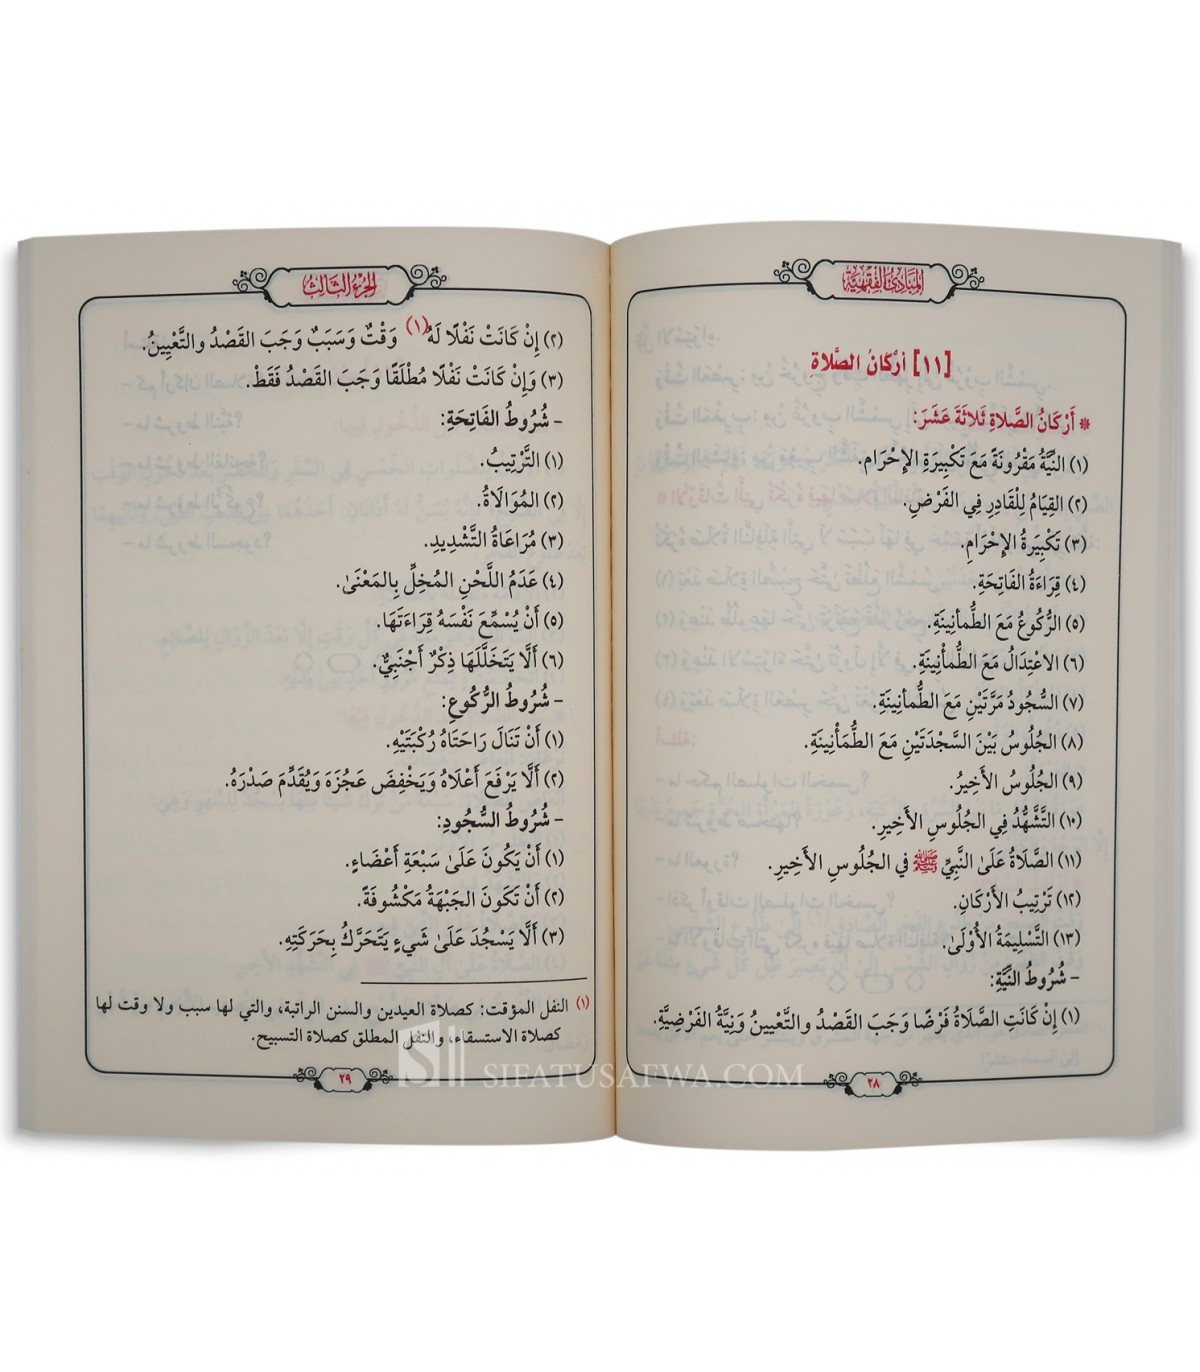 المَبَادِئُ الفِقْهِيَّة
[١١] أَرْكَانُ الصَّلَاةِ
* أَرْكَانُ الصَّلَاةِ ثَلَاثَةَ عَشَرَ:
(١) النِّيَّةُ مَقْرُونَةً مَعَ تَكْبِيرَةِ الإِحْرَامِ.
(٢) القِيَامُ لِلْقَادِرِ فِي الفَرْضِ.
(٣) تَكْبِيرَةُ الإِحْرَامِ.
(٤) قِرَاءَةُ الفَاتِحَةِ.
(٥) الرُّكُوعُ مَعَ الطُّمأنِينَةِ.
(٦) الاعْتِدَالُ مَعَ الطُّمأنِينَةِ.
(٧) السُّجُودُ مَرَّتَيْنِ مَعَ الطُّمأنِينَةِ.
(٨) الجُلُوسُ بَيْنَ السَّجْدَتَيْنِ مَعَ الطُّمَأْنِينَةِ.
(٩) الجُلُوسُ الأَخِيرُ.
(١٠) التَّشَهُّدُ فِي الجُلُوسِ الأَخِيرِ.
(١١) الصَّلَاةُ عَلَىٰ النَّبِيِّ ﷺ في الجُلُوسِ الأَخِيرِ.
(١٢) تَرْتِيبُ الأَرْكَانِ.
(١٣) التَّسْلِيمَةُ الأُوْلَىٰ.
– شُرُوطُ النِّيَّةِ:
(١) إِنْ كَانَتِ الصَّلَاةُ فَرْضًا وَجَبَ القَصْدُ والتَّعْيينُ وَنِيَّةُ الفَرْضِيَّةِ.
٢٨
الجُزْءُ الثَّالِثُ
(٢) إِنْ كَانَتْ نَفْلًا لَهُ(١) وَقْتٌ وَسَبَبٌ وَجَبَ القَصْدُ والتَّعْيِينُ.
(٣) وَإِنْ كَانَتْ نَفْلًا مُطْلَقًا وَجَبَ القَصْدُ فَقَطْ.
– شُرُوطُ الفَاتِحَةِ:
(١) التَّرْتِيبُ.
(٢) المُوَالَاةُ.
(٣) مُرَاعَاةُ التَّشْدِيدِ.
(٤) عَدَمُ اللَّحْنِ المُخِلِّ بِالمَعْنَىٰ.
(٥) أَنْ يُسْمِّعَ نَفْسَهُ قِرَاءَتَهَا.
(٦) أَلَّا يَتَخَلَّلَهَا ذِكْرٌ أَجْنَبِيٌّ.
– شُرُوطُ الرُّكُوعِ:
(١) أَنْ تَنَالَ رَاحَتَاهُ رُكْبَتَيْهِ.
(٢) أَلَّا يَرْفَعَ أَعْلَاهُ وَيَخْفِضَ عَجُزَهَ وَيُقَدِّمَ صَدْرَهُ.
– شُرُوطُ السُّجُودِ:
(١) أَنْ يَكُونَ عَلَىٰ سَبْعَةِ أَعْضَاءٍ.
(٢) أَنْ تَكُونَ الجَبْهَةُ مَكْشُوفَةً.
(٣) أَلَّا يَسْجُدَ عَلَىٰ شَيءٍ يَتَحَرَّكُ بِحَرَكَتِهِ.
(١) النفل المؤقت: كصلاة العيدين والسنن الراتبة، والتي لها سبب ولا وقت لها
كصلاة الاستسقاء، والنفل المطلق كصلاة التسبيح.
٢٩
SIFATUSAFWA.COM